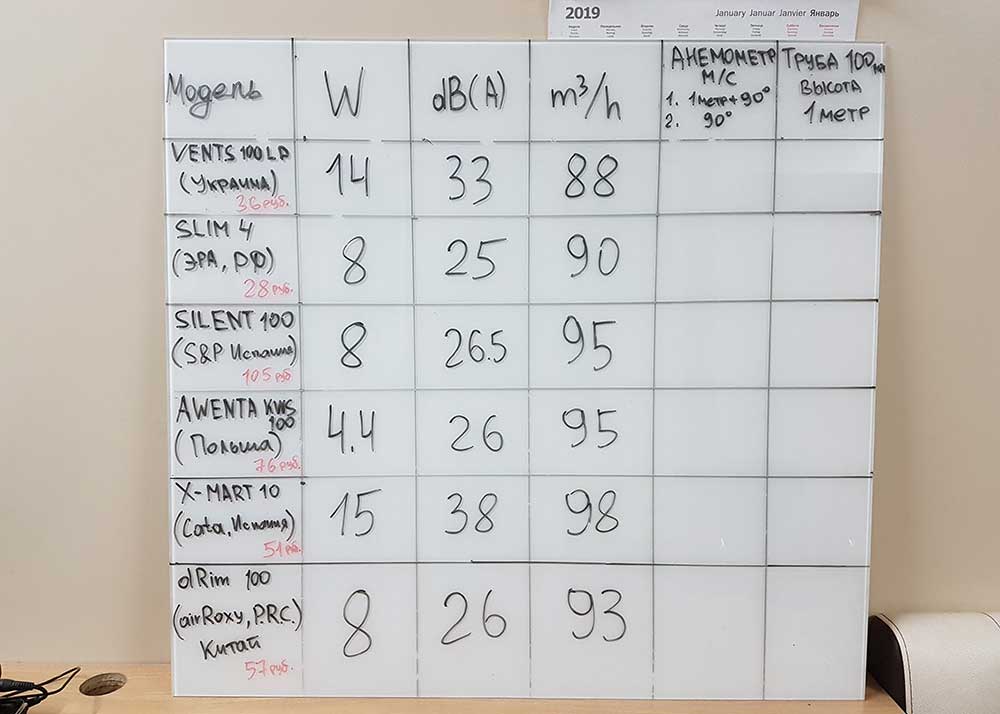 2019 January Januar Janvier Январь
Модель W dB(A) m³/h АНЕМОМЕТР М/С 1. 1 МЕТР + 90° 2. 90° ТРУБА 100мм ВЫСОТА 1 МЕТР
VENTS 100 LD (УКРАИНА) 36 руб. 14 33 88
SLIM 4 (ЭРА, РФ) 28 руб. 8 25 90
SILENT 100 (S&P Испания) 105 руб 8 26.5 95
AWENTA KWS 100 (Польша) 76 руб. 4.4 26 95
X-MART 10 (Cata, Испания) 51 руб. 15 38 98
dRim 100 (airRoxy, P.R.C.) Китай 57 руб. 8 26 93